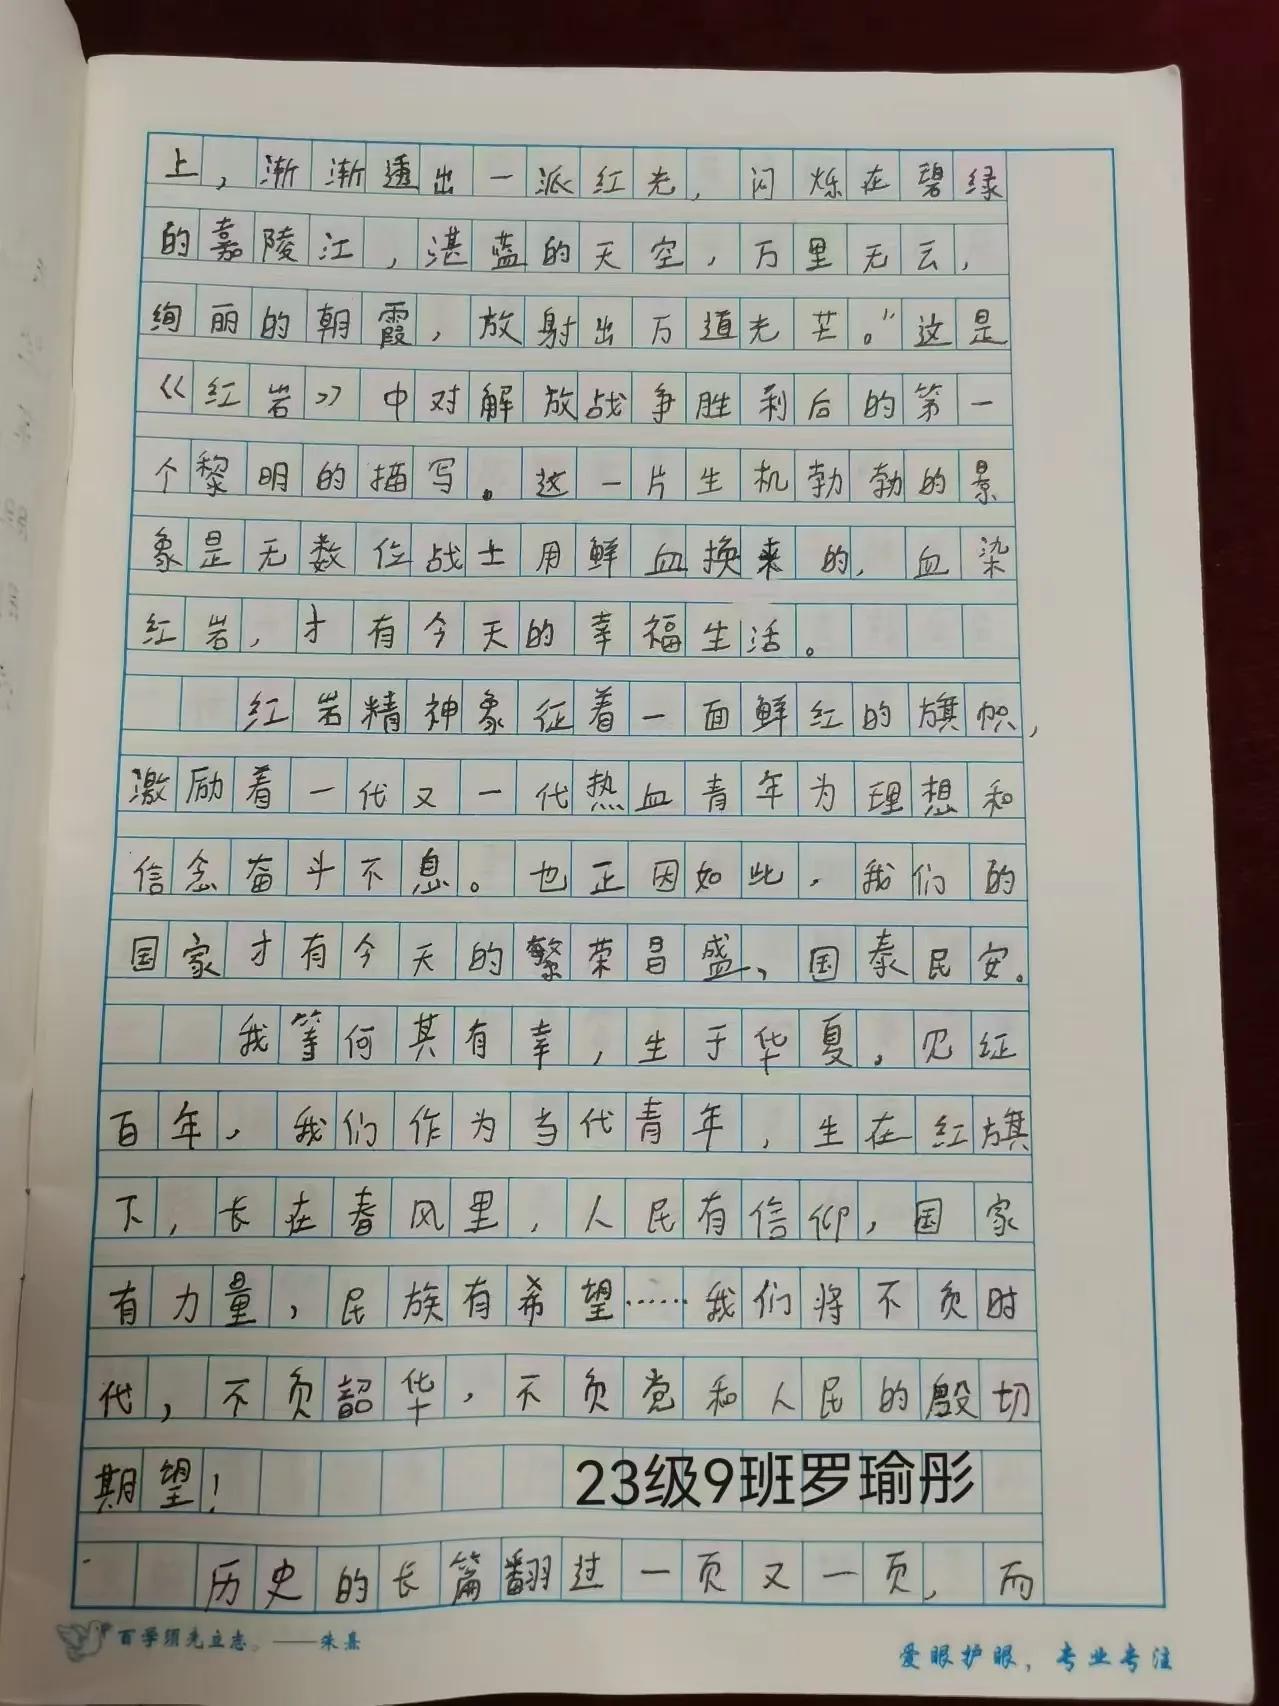 上，渐渐透出一派红光，闪烁在碧绿
的嘉陵江，湛蓝的天空，万里无云，
绚丽的朝霞，放射出万道光芒。”这是
《红岩》中对解放战争胜利后的第一
个黎明的描写。这一片生机勃勃的景
象是无数位战士用鲜血换来的，血染
红岩，才有今天的幸福生活。
红岩精神象征着一面鲜红的旗帜，
激励着一代又一代热血青年为理想和
信念奋斗不息。也正因如此，我们的
国家才有今天的繁荣昌盛、国泰民安。
我等何其有幸，生于华夏，见证
百年，我们作为当代青年，生在红旗
下，长在春风里，人民有信仰，国家
有力量，民族有希望……我们将不负时
代，不负韶华，不负党和人民的殷切
期望！
23级9班罗瑜彤
历史的长篇翻过一页又一页，而
百学须先立志。——朱熹
爱眼护眼，专业专注